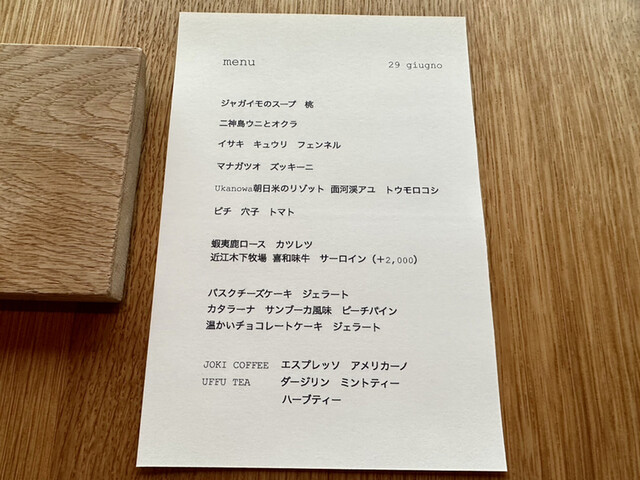 menu
29 giugno
ジャガイモのスープ 桃
二神島ウニとオクラ
イサキ キュウリ フェンネル
マナガツオ ズッキーニ
Ukanowa朝日米のリゾット 面河渓アユ トウモロコシ
ピチ 穴子 トマト
蝦夷鹿ロース カツレツ
近江木下牧場 喜和味牛 サーロイン（＋2,000）
バスクチーズケーキ ジェラート
カタラーナ サンブーカ風味 ピーチパイン
温かいチョコレートケーキ ジェラート
JOKI COFFEE エスプレッソ アメリカーノ
UFFU TEA ダージリン ミントティー
ハーブティー